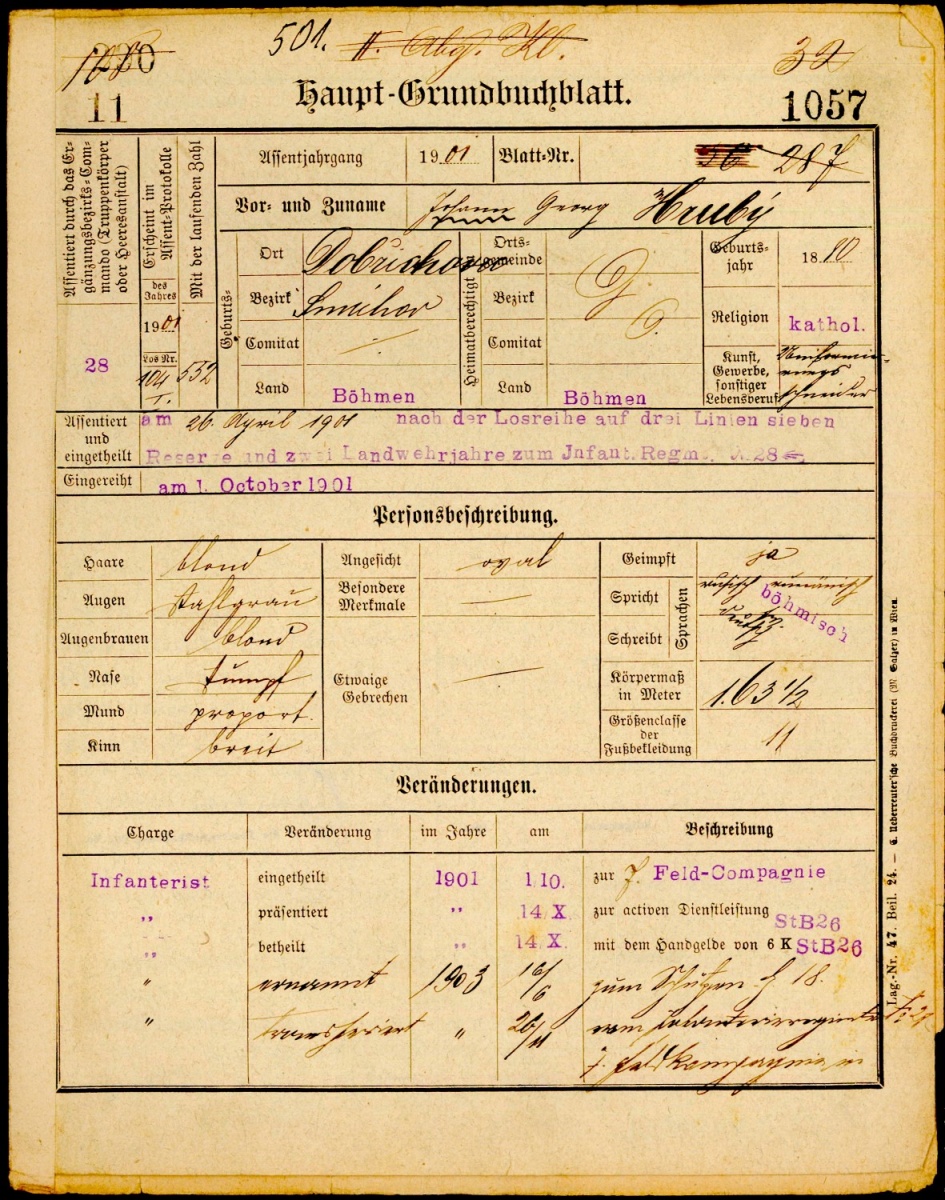 501. II. Abg. Kl. 32
11 Haupt-Grundbuchblatt. 1057
Assentiert durch das Ergänzungsbezirks-Commando (Truppenkörper oder Heeresanstalt)
28
Erscheint im Assent-Protokolle
des Jahres
1901
Los Nr.
104
I.
Mit der laufenden Zahl
552
Assentjahrgang 1901 Blatt-Nr. 287
Vor- und Zuname Johann Georg Hrubý
Geburts-
Ort Dobřichov
Bezirk Smichov
Comitat
Land Böhmen
Heimatberechtigt
Orts-
gemeinde
Bezirk
Comitat
Land Böhmen
Geburts-
jahr 1880
Religion kathol.
Kunst,
Gewerbe,
sonstiger
Lebensberuf
Uniformie-
rungs
schneider
Assentiert
und
eingetheilt
am 26. April 1901 nach der Losreihe auf drei Linien sieben
Reserve und zwei Landwehrjahre zum Infant. Regmt. N. 28
Eingereiht am 1. October 1901
Personsbeschreibung.
Haare blond
Augen stahlgrau
Augenbrauen blond
Nase stumpf
Mund proport.
Kinn breit
Angesicht oval
Besondere
Merkmale —
Etwaige
Gebrechen —
Geimpft ja
Spricht
Schreibt
Sprachen
russisch rumänisch
böhmisch
deutsch
Körpermaß
in Meter 1.63 1/2
Größenclasse
der
Fußbekleidung 11
Veränderungen.
Charge Veränderung im Jahre am Beschreibung
Infanterist eingetheilt 1901 1.10. zur 7. Feld-Compagnie
„ präsentiert „ 14. X. zur activen Dienstleistung StB26
„ betheilt „ 14. X. mit dem Handgelde von 6 K StB26
„ ernannt 1903 16/6 zum Schützen § 18.
„ transferiert „ 26/11 vom Infanterieregimente
7. Feldkompagnie in
Lag.-Nr. 47. Beil. 24. — C. Ueberreuter'sche Buchdruckerei (M. Salzer) in Wien.